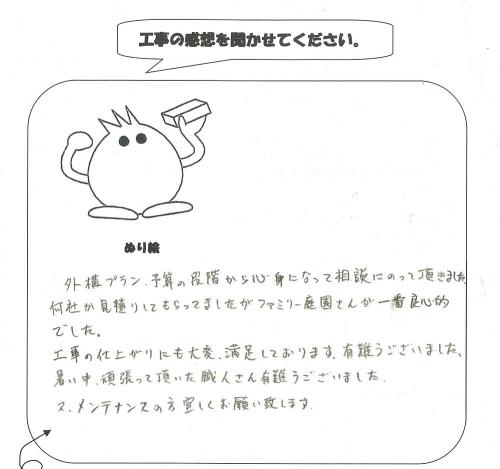 工事の感想を聞かせてください。
ぬり絵
外構プラン、予算の段階から心身になって相談にのって頂きました
何社か見積りしてもらってましたがファミリー庭園さんが一番良心的
でした。
工事の仕上がりにも大変、満足しております。有難うございました。
暑い中、頑張って頂いた職人さん有難うございました。
又、メンテナンスの方宜しくお願い致します。